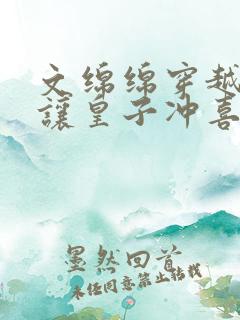 文綿綿穿越
讓皇子沖喜
墨然回首
未经同意禁止转载